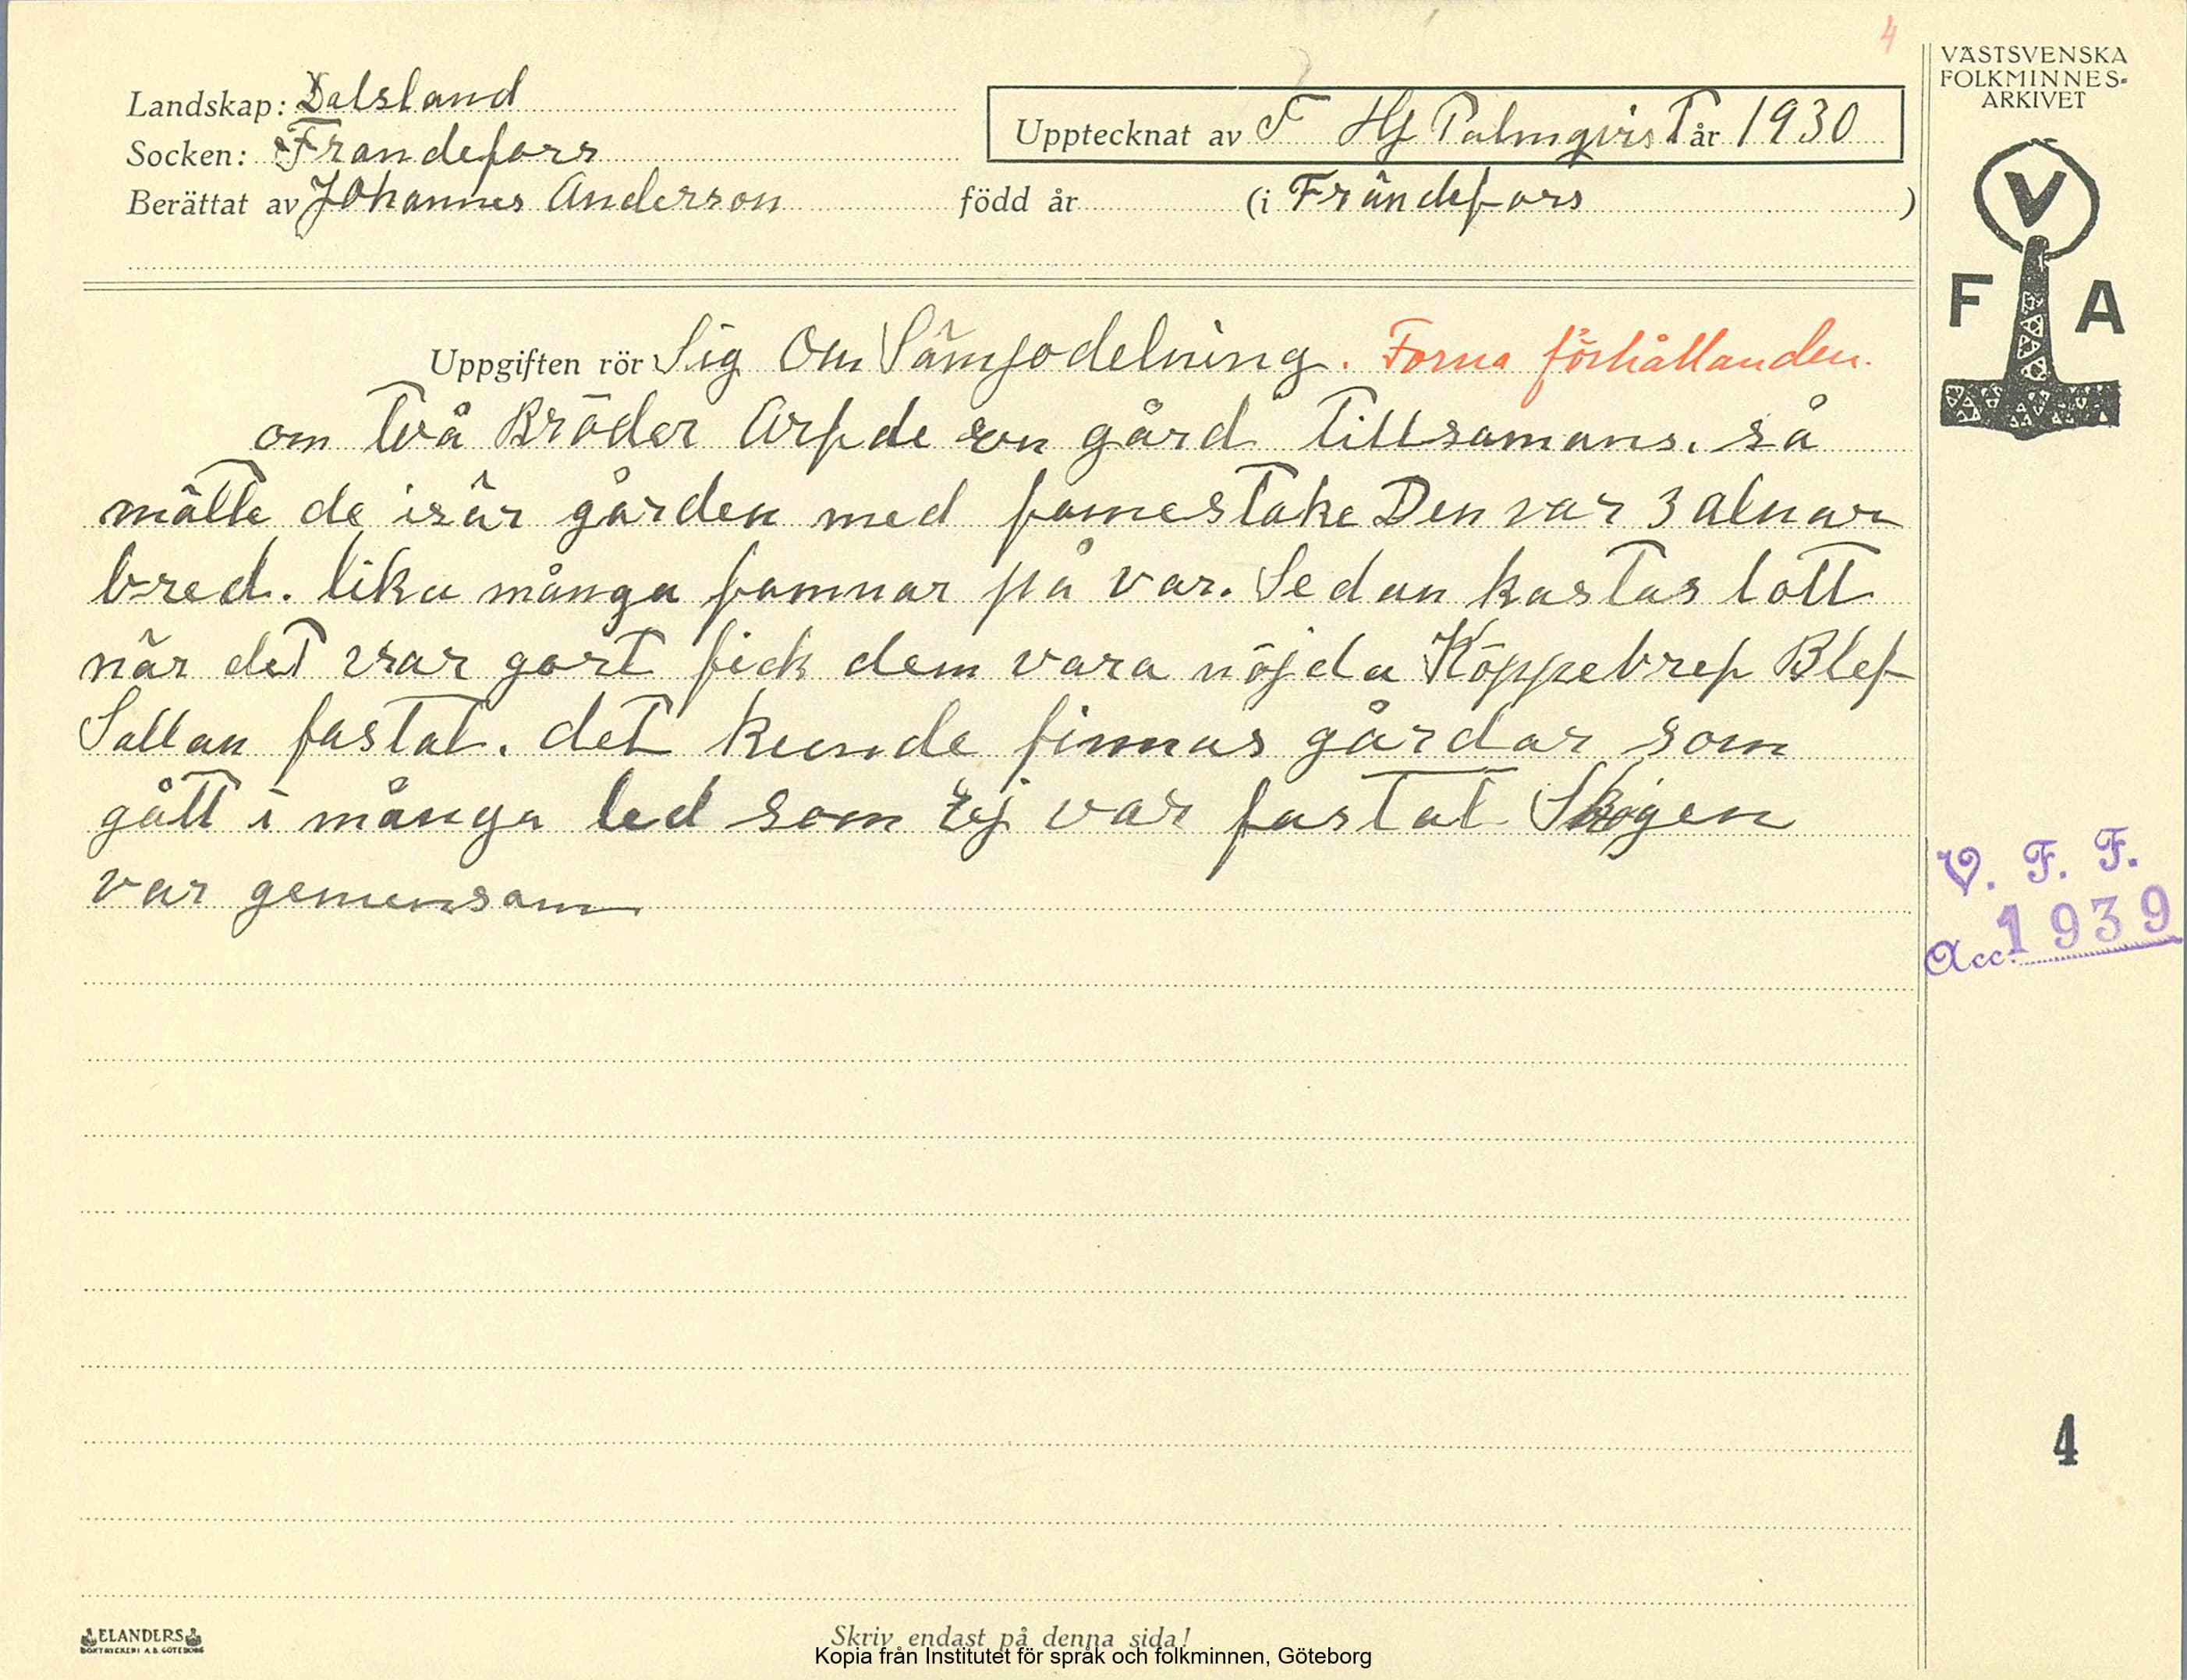 4
VÄSTSVENSKA
FOLKMINNES-
ARKIVET
Landskap: Dalsland
Socken: Frändefors
Upptecknat av F Hj Palmqvist år 1930
Berättat av Johannes Anderson född år (i Frändefors )
V
F A
Uppgiften rör Sig Om Sämjodelning. Forna förhållanden.
om Två Bröder Ärfde en gård Tillsamans. så
mätte de isär gården med famestake Den var 3 alnar
bred. lika många famnar på var. Sedan kastas lott
när det var gort fick dem vara nöjda Köppebref Blef
Sällan fastat. det kunde finnas gårdar som
gått i många led som Ej var fastat Skogen
var gemensam
V. F. F.
Acc. 1939
4
ELANDERS
BOKTRYCKERI A.B. GÖTEBORG
Skriv endast på denna sida!
Kopia från Institutet för språk och folkminnen, Göteborg